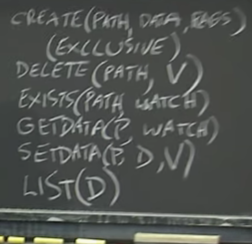 CREATE(PATH, DATA, FLAGS)
(EXCLUSIVE)
DELETE(PATH, V)
EXISTS(PATH, WATCH)
GETDATA(P, WATCH)
SETDATA(P, D, V)
LIST(D)